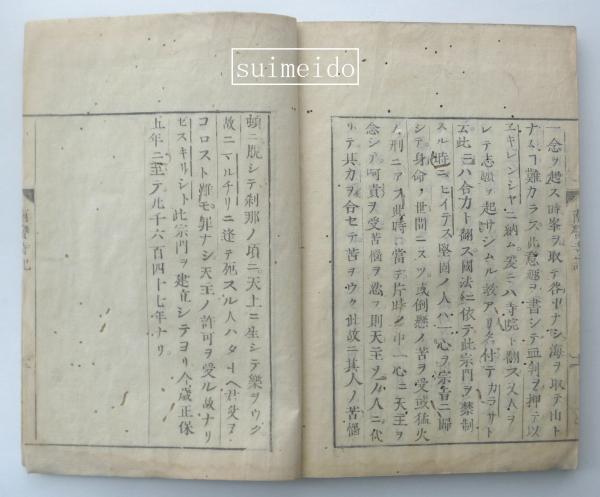 suimeido
一念ヲ起ス時峯ヲ取テ谷トナシ海ヲ取テ山ト
ナスヿ難カラス此意趣ヲ書シテ血判ヲ押テ以
ヱキレンシヤニ納ム爰ニハ寺院ト翻ス又人ヲ
シテ志願ヲ起サシムル教アリ名付テカラサト
云此ニハ合力ト翻ス國法ニ依テ此宗門ヲ禁制
スル時ニヒイテス堅固ノ人ハ一心ヲ宗旨ニ歸
シテ身命ノ世間ニスツ或倒懸ノ苦ヲ受或猛火
ノ刑ニアフ此時ニ當テ片時ノ中一心ニ天主ヲ
念シテ呵責ヲ受苦惱ヲ忍フ則天主ヲノ人ニ代
リテ其力ヲ合セテ苦ヲウク此故ニ其人ノ苦惱
頓ニ既シテ刹那ノ頃ニ天上ニ生シテ樂ヲウク
故ニマルチリニ逢テ死スル人ハタトヘ君父ヲ
コロスト雖モ罪ナシ天主ノ許可ヲ受ル故ナリ
ゼスキリシト此宗門ヲ建立シテヨリ今歳正保
五年ニ至テ凡千六百四十七年ナリ